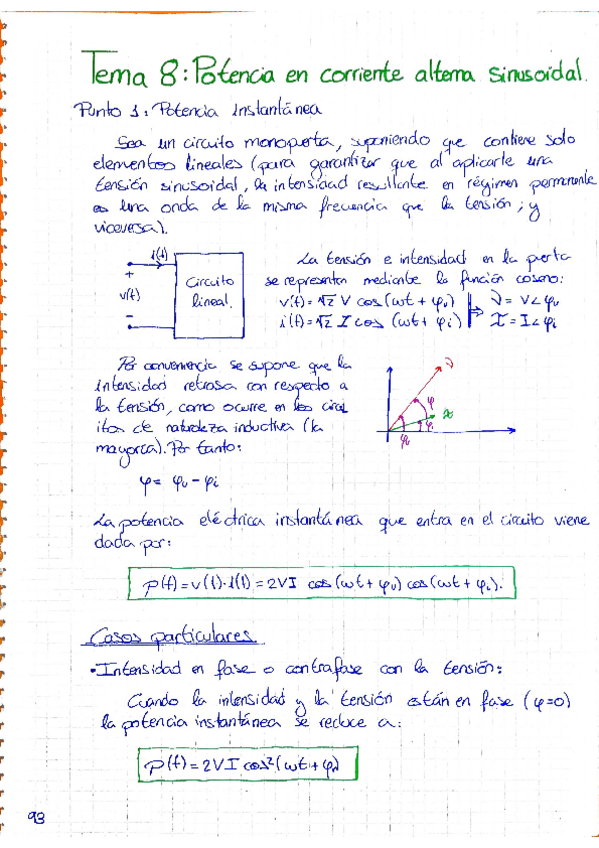 Tema 8: Potencia en corriente alterna sinusoidal.
Punto 1: Potencia Instantánea
Sea un circuito monopuerta, suponiendo que contiene solo
elementos lineales (para garantizar que al aplicarle una
tensión sinusoidal, la intensidad resultante en régimen permanente
es una onda de la misma frecuencia que la tensión; y
viceversa).
i(t)
+
v(t)
-
Circuito
lineal.
La tensión e intensidad en la puerta
se representan mediante la función coseno:
v(t) = √2 V cos (ωt + φv)
V = V∠φv
i(t) = √2 I cos (ωt + φi)
I = I∠φi
Por conveniencia se supone que la
intensidad retrasa con respecto a
la tensión, como ocurre en los circu
itos de naturaleza inductiva (la
mayoría). Por tanto:
φ = φv - φi
V
φ
I
φi
φv
La potencia eléctrica instantánea que entra en el circuito viene
dada por:
p(t) = v(t)·i(t) = 2VI cos (ωt + φv) cos (ωt + φi).
Casos particulares
• Intensidad en fase o contrafase con la tensión:
Cuando la intensidad y la tensión están en fase (φ=0)
la potencia instantánea se reduce a:
p(t) = 2VI cos²(ωt + φv)
93